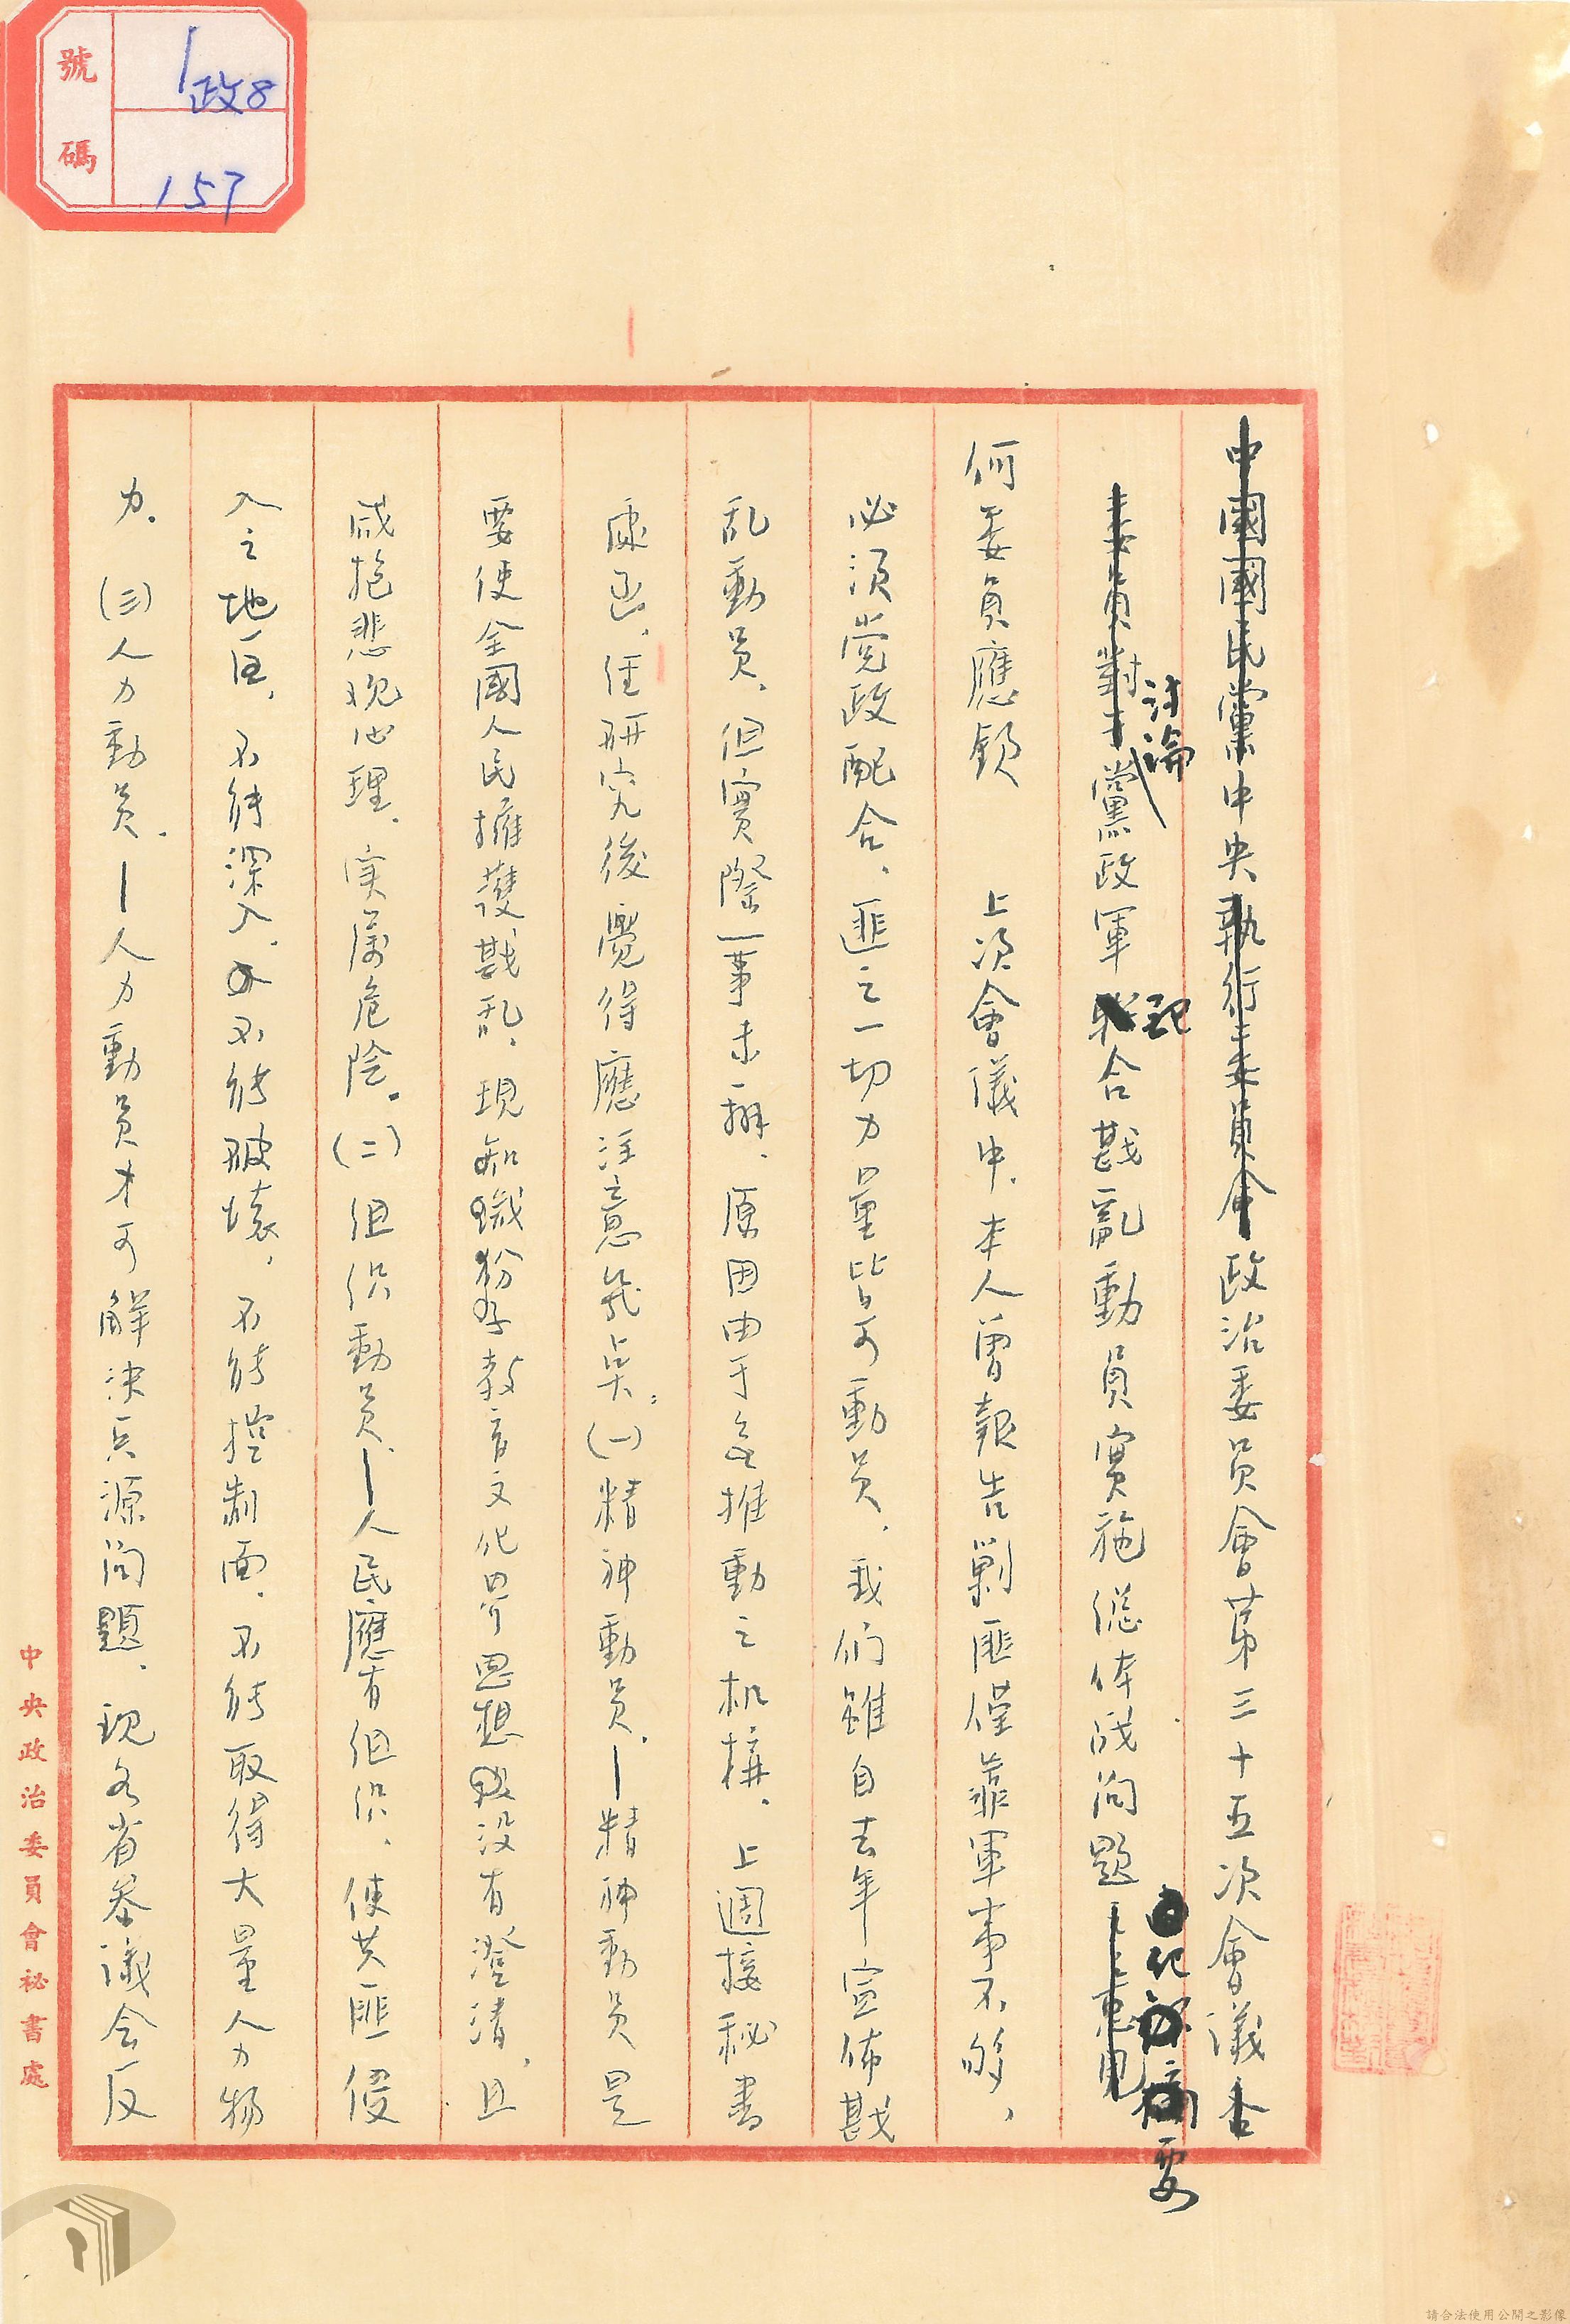 號碼
1政8
157
中國國民黨中央執行委員會政治委員會第三十五次會議各
委員對于黨政軍配合戡亂動員實施總体战问題之意見
討論
紀錄摘要
何委員應欽　上次會議中，本人曾報告剿匪僅靠軍事不够，
必須党政配合，匪之一切力量皆可動員，我们雖自去年宣佈戡
乱動員，但實際一事未辦，原因由于無推動之机構，上週接秘書
處函，經研究後覺得應注意幾點：(一)精神動員，—精神動員是
要使全國人民擁護戡乱，現知識份子教育文化界思想没有澄清，且
咸抱悲观心理，实属危险。(二)组织動員，—人民應有组织，使共匪侵
入之地区，不能深入，不能破壞，不能控制面，不能取得大量人力物
力。(三)人力動員，—人力動員才可解決兵源问題，现各省参議会反
中央政治委員會祕書處
請合法使用公開之影像